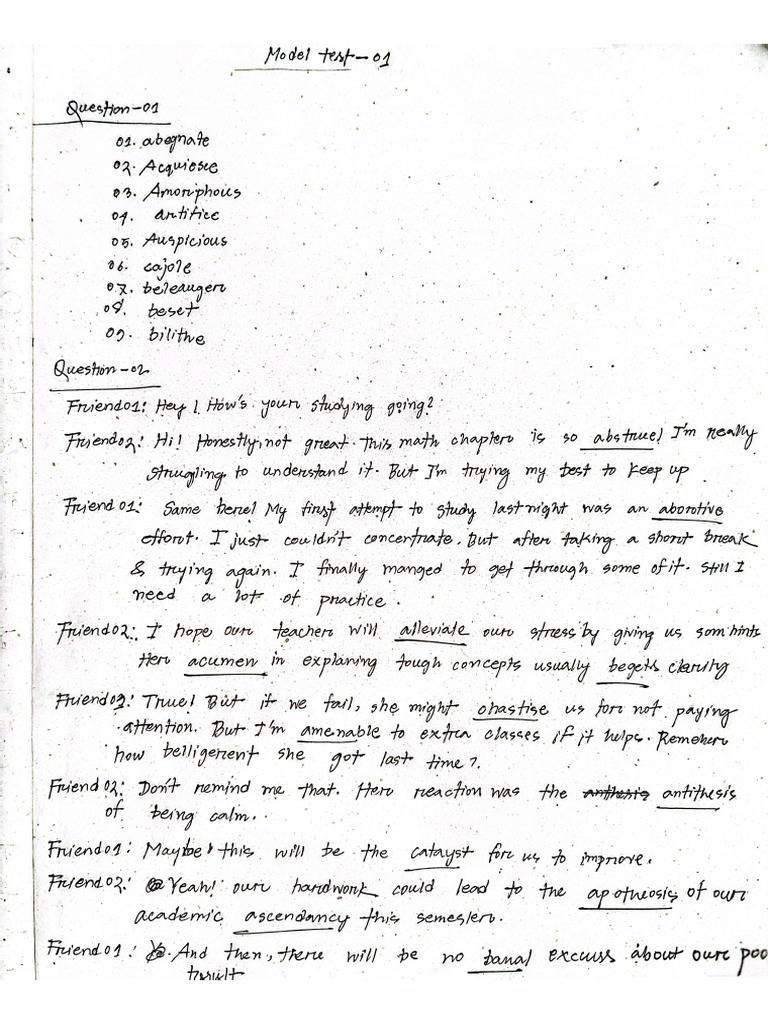 Model test-01
Question-01
01. abegnate
02. Acquiesce
03. Amorphous
04. artifice
05. Auspicious
06. cajole
07. beleauger
08. beset
09. bilithe
Question-02
Friend01: Hey! How's your studying going?
Friend02: Hi! Honestly, not great. This math chapter is so abstrue! I'm really
struggling to understand it. But I'm trying my best to keep up
Friend01: Same here! My first attempt to study last night was an abortive
effort. I just couldn't concentrate. But after taking a short break
& trying again. I finally manged to get through some of it. Still I
need a lot of practice.
Friend02: I hope our teacher will alleviate our stress by giving us som hints
Her acumen in explaning tough concepts usually begets clarity
True! But if we fail, she might chastise us for not paying
attention. But I'm amenable to extra classes if it helps. Remeher
how belligerent she got last time?
Friend02: Don't remind me that. Her reaction was the antithesis
of being calm.
Friend01: Maybe! this will be the catayst for us to improve.
Friend02: Yeah! our hardwork could lead to the apotheosis of our
academic ascendancy this semester.
Friend01: And then, there will be no banal excuses about our poo